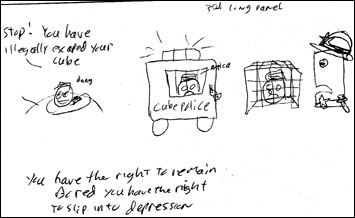 3rd long panel
Stop! You have
illegally escaped your
cube
dang
office
Cube police
You have the right to remain
Bored you have the right
to slip into depression